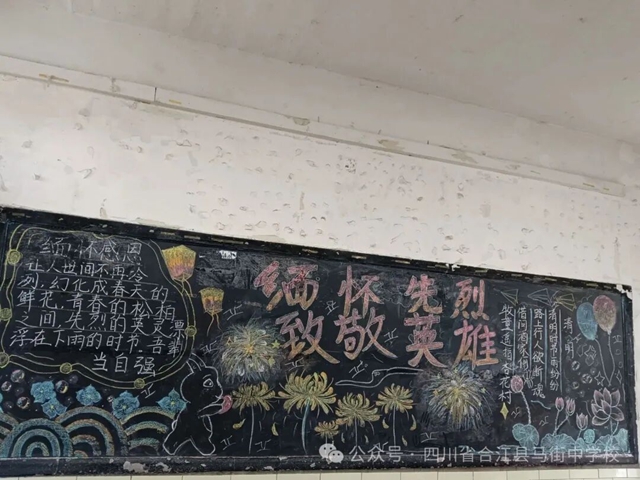 缅怀感恩
缅怀先烈
致敬英雄
清明
清明时节雨纷纷
路上行人欲断魂
借问酒家何处有
牧童遥指杏花村
让人世间不再冷
鲜花,青春的松柏
之间,先烈的英灵
浮在下雨的时节.吾
当自强
公众号·四川省合江县马街中学校